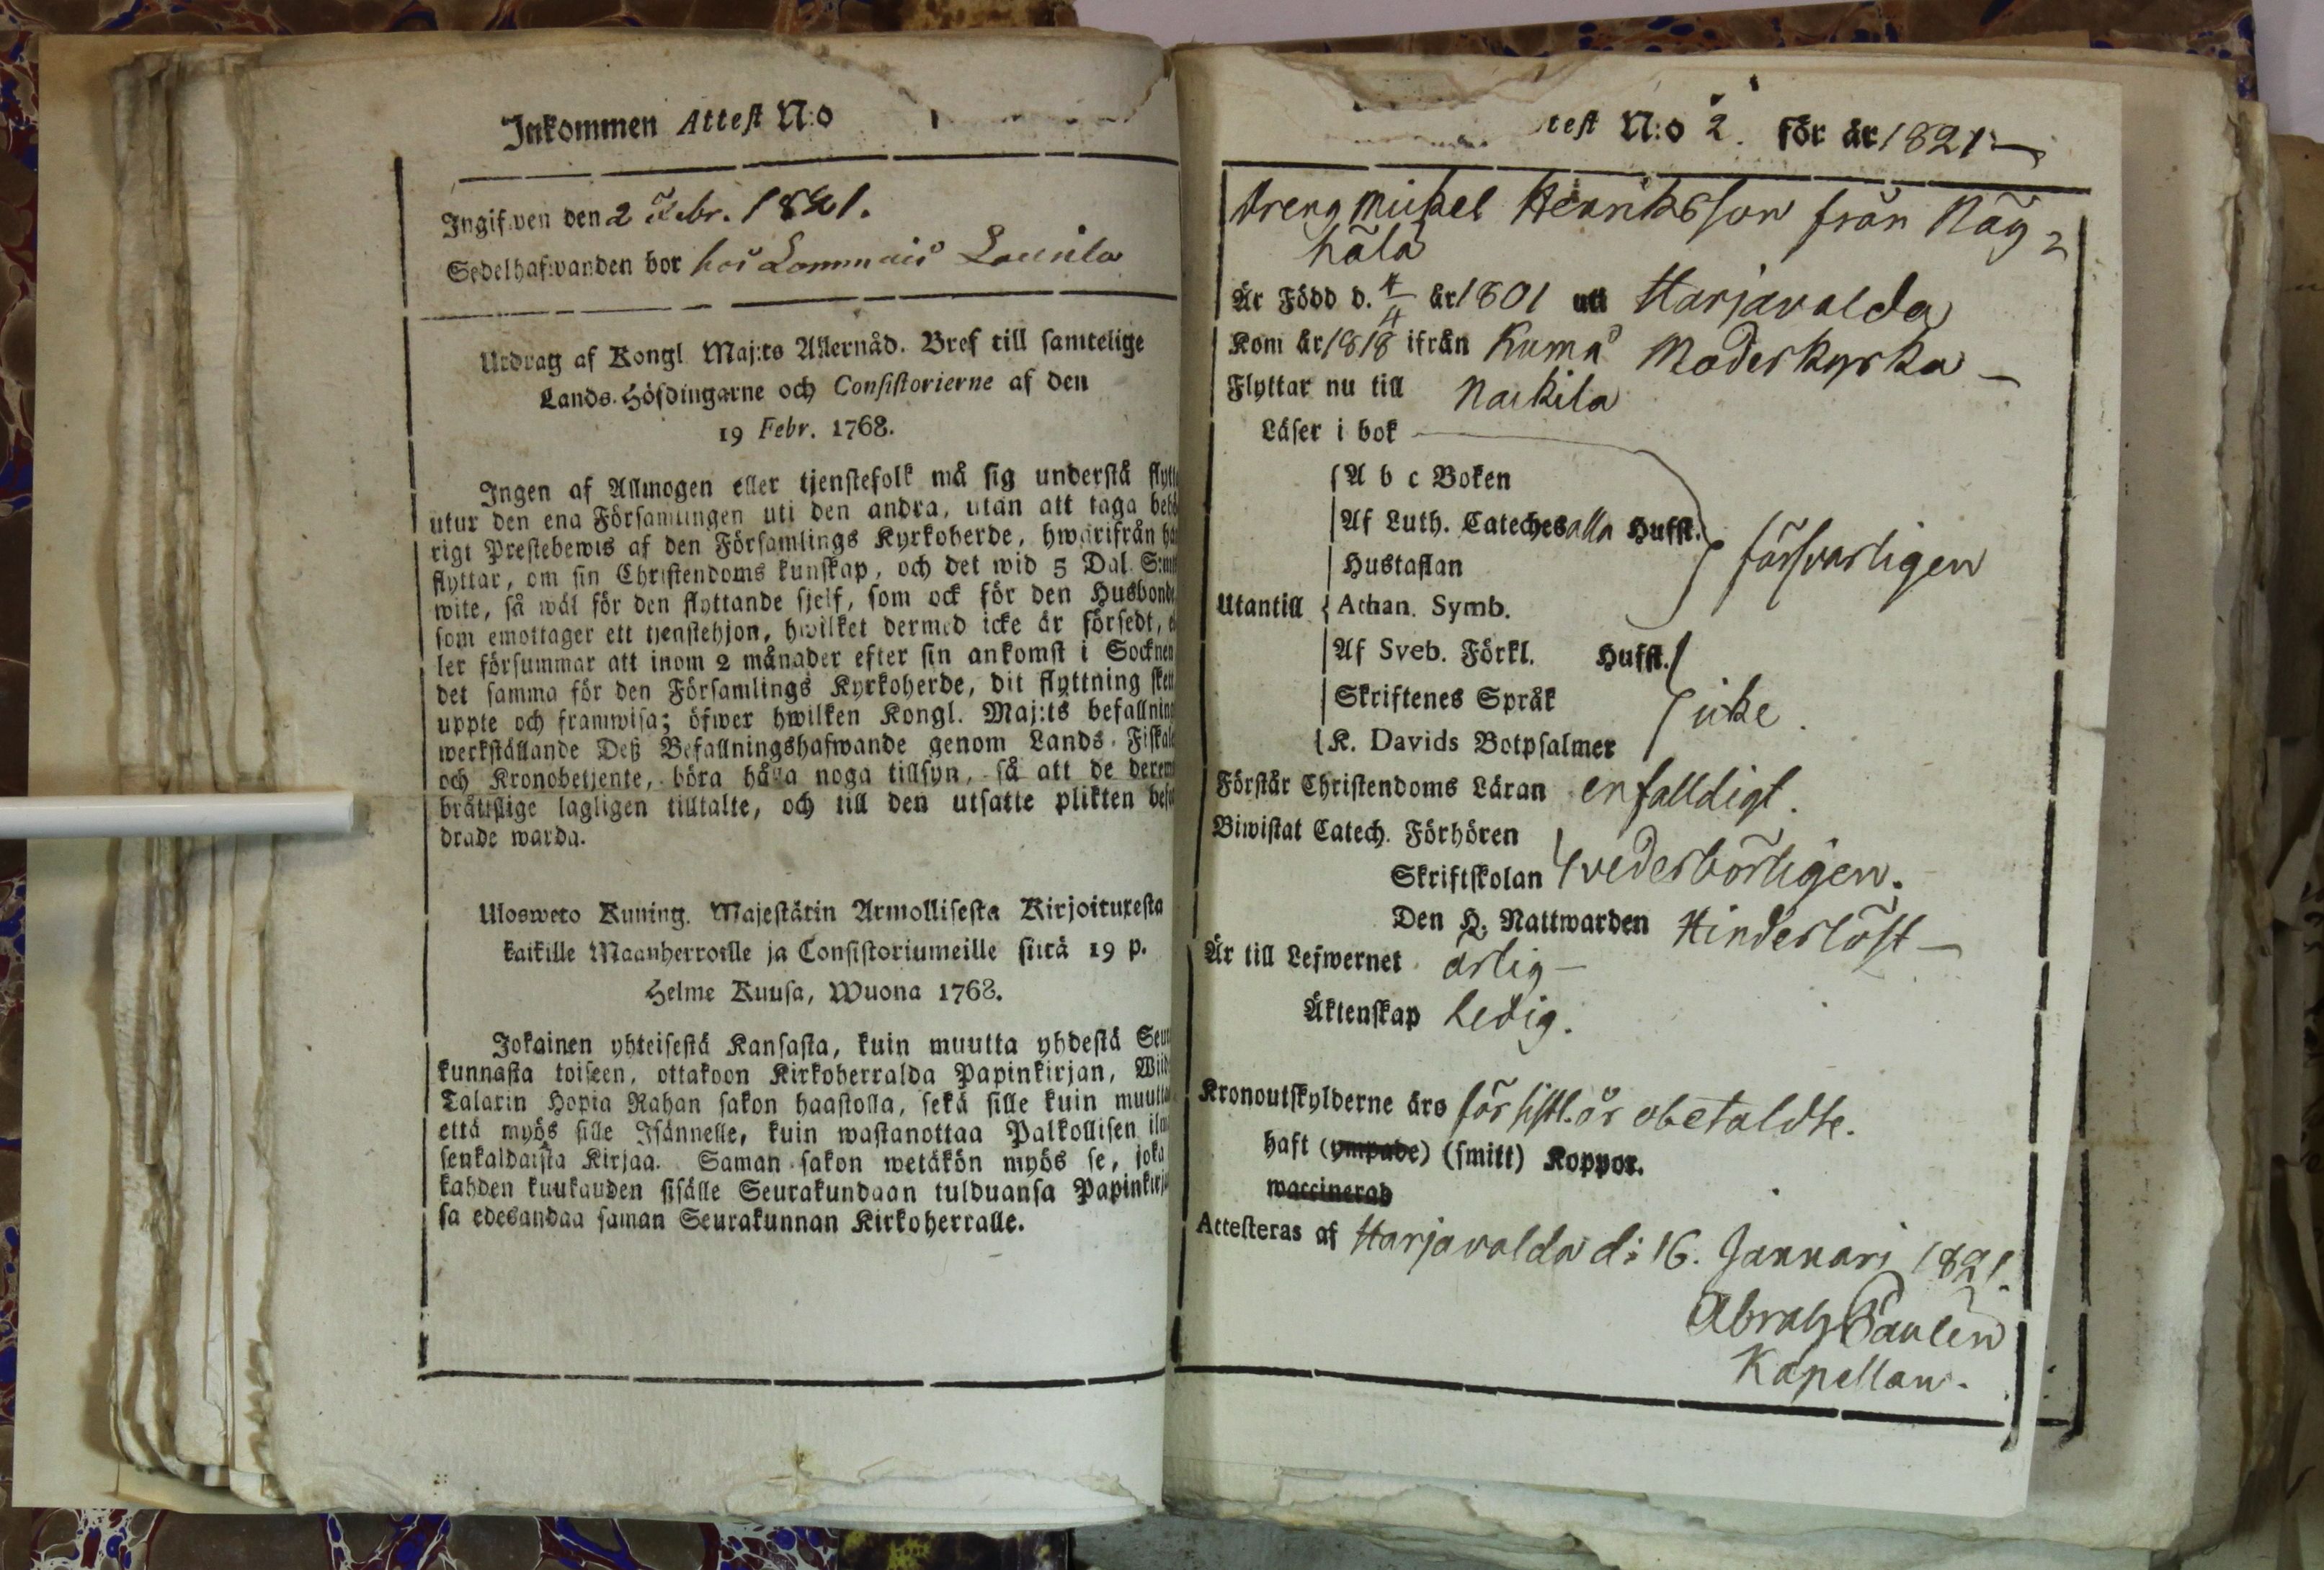 Inkommen Attest N:o
Ingifwen den 2 Febr. 1821.
Sedelhafwanden bor hos
Utdrag af Kongl. Maj:ts Allernåd. Bref till samtelige
Lands-Höfdingarne och Consistorierne af den
19 Febr. 1768.
Ingen af Allmogen eller tjenstefolk må sig understå
utur den ena Församlingen uti den andra, utan att taga
rigt Prestebewis af den Församlings Kyrkoherde, hwarifrån
flyttar, om sin Christendoms kunskap, och det wid 5 Dal.
wite, så wäl för den flyttande sjelf, som ock för den
som emottager ett tjenstehjon, hwilket dermed icke är försedt,
ler försummar att inom 2 månader efter sin ankomst i
det samma för den Församlings Kyrkoherde, dit flyttning
uppte och framwisa; öfwer hwilken Kongl. Maj:ts
werkställande Deß Befallningshafwande genom Lands-
och Kronobetjente, böra hålla noga tillsyn, så att de
bråttslige lagligen tilltalte, och till den utsatte plikten
drade warda.
Ulosweto Kuning. Majestätin Armollisesta Kirjoituxesta
kaikille Maanherroille ja Consistoriumeille siitä 19 p.
Helme Kuusa, Wuona 1768.
Jokainen yhteisestä Kansasta, kuin muutta yhdestä
kunnasta toiseen, ottakoon Kirkoherralda Papinkirjan,
Talarin Hopia Rahan sakon haastolla, sekä sille kuin
että myös sille Isännelle, kuin wastanottaa Palkollisen
senkaldaista Kirjaa. Saman sakon wetäkön myös se, joka
kahden kuukauden sisälle Seurakundaan tulduansa
sa edesandaa saman Seurakunnan Kirkoherralle.
test N:o 2. för år 1821
Dreng Mickel Henriksson från Näy-
hälä
Är Född d. 4/4 år 1801 uti Harjavalda
Kom år 1818 ifrån Kumå Moderkyrka
Flyttar nu till Nackila
Läser i bok
A b c Boken
Af Luth. Cateches alla Hufst.
Hustaflan
försvarligen
Utantill Athan. Symb.
Af Sveb. Förkl. Hufst.
Skriftenes Språk
icke.
K. Davids Botpsalmer
Förstår Christendoms Läran enfalldigt.
Biwistat Catech. Förhören
Skriftskolan vederbörligen.
Den H. Nattwarden Hinderlöst
Är till Lefwernet ärlig
Äktenskap Ledig.
Kronoutskylderne äro för sistl. år obetaldte.
haft (ympade) (smitt) Koppor.
waccinerad
Attesteras af Harjavalda d: 16. Januari 1821.
Abrah
Kapellan.